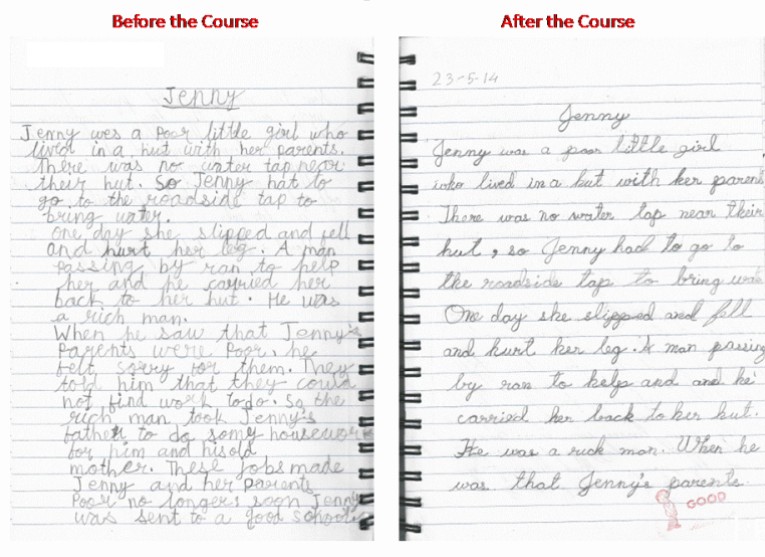 Before the Course
Jenny
Jenny wes a poor little girl who
lived in a hut with her parents.
There was no water tap near
their hut. So Jenny hat to
go to the roadside tap to
bring water.
One day she slipped and fell
and hurt her leg. A man
passing by ran to help
her and he carried her
back to her hut. He was
a rich man.
When he saw that Jenny's
Parents were Poor, he
felt sorry for them. They
told him that they could
not find work to do. So the
rich man took Jenny's
father to do
for him and his old
mother. These jobs made
Jenny and her parents
Poor no longer. soon Jenny
was sent to a good school.
After the Course
23-5-14
Jenny
Jenny was a poor little girl
who lived in a hut with her parents
There was no water tap near their
hut, so Jenny had to go to
the roadside tap to bring
One day she slipped and fell
and hurt her leg. A man passing
by ran to help and and he
carried her back to her hut.
He was a man. When he
was that Jenny's parents
GOOD